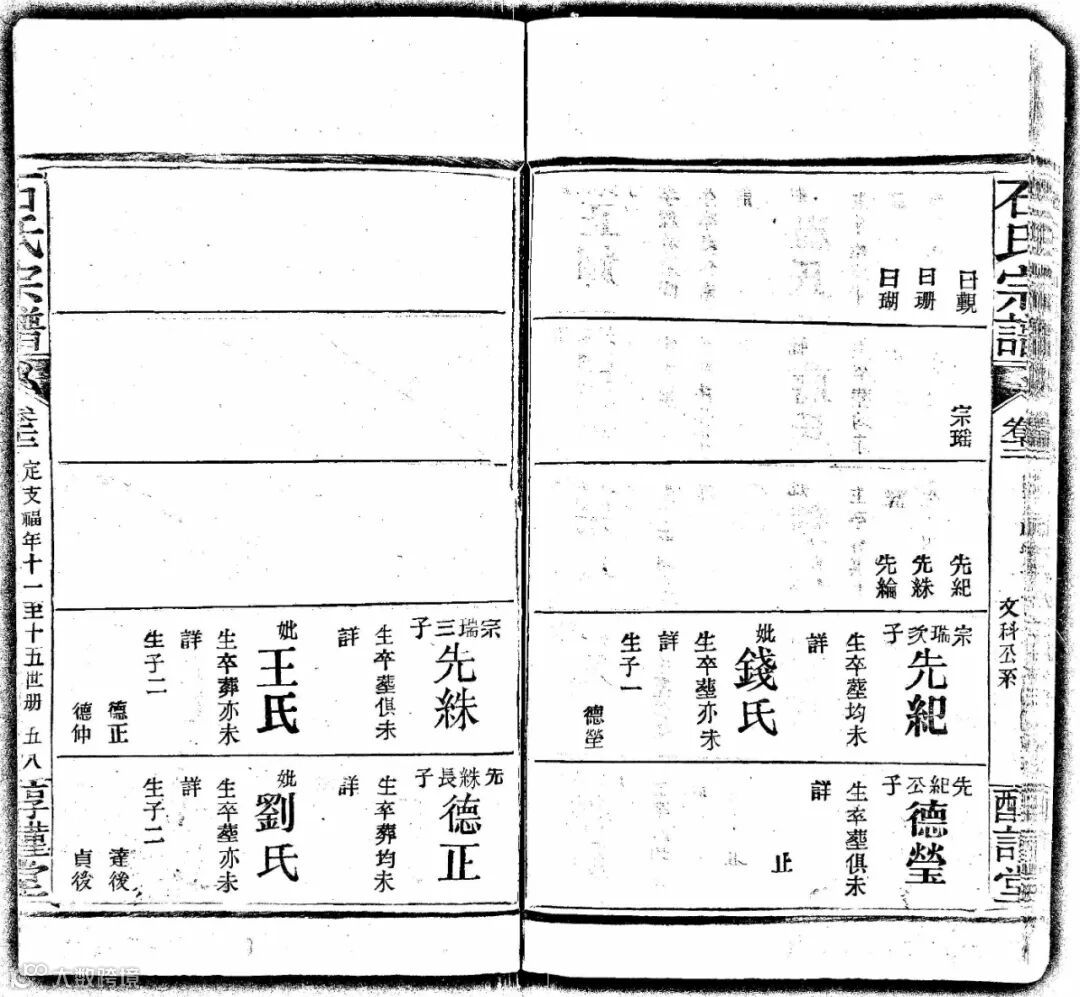 石氏宗譜
文科公系
日觀
日珊
日瑚
宗瑶
先紀
先銖
先綸
宗瑞次子
先紀
生卒塟均未
詳
妣
錢氏
生卒塟亦未
詳
生子一
德瑩
先紀公子
德瑩
生卒塟俱未
詳
止
宗瑞三子
先銖
生卒塟俱未
詳
妣
王氏
生卒葬亦未
詳
生子二
德正
德仲
先銖長子
德正
生卒葬均未
詳
妣
劉氏
生卒塟亦未
詳
生子二
達後
貞後
石氏宗譜
定支福年十一至十五世册
五八
大数跨境